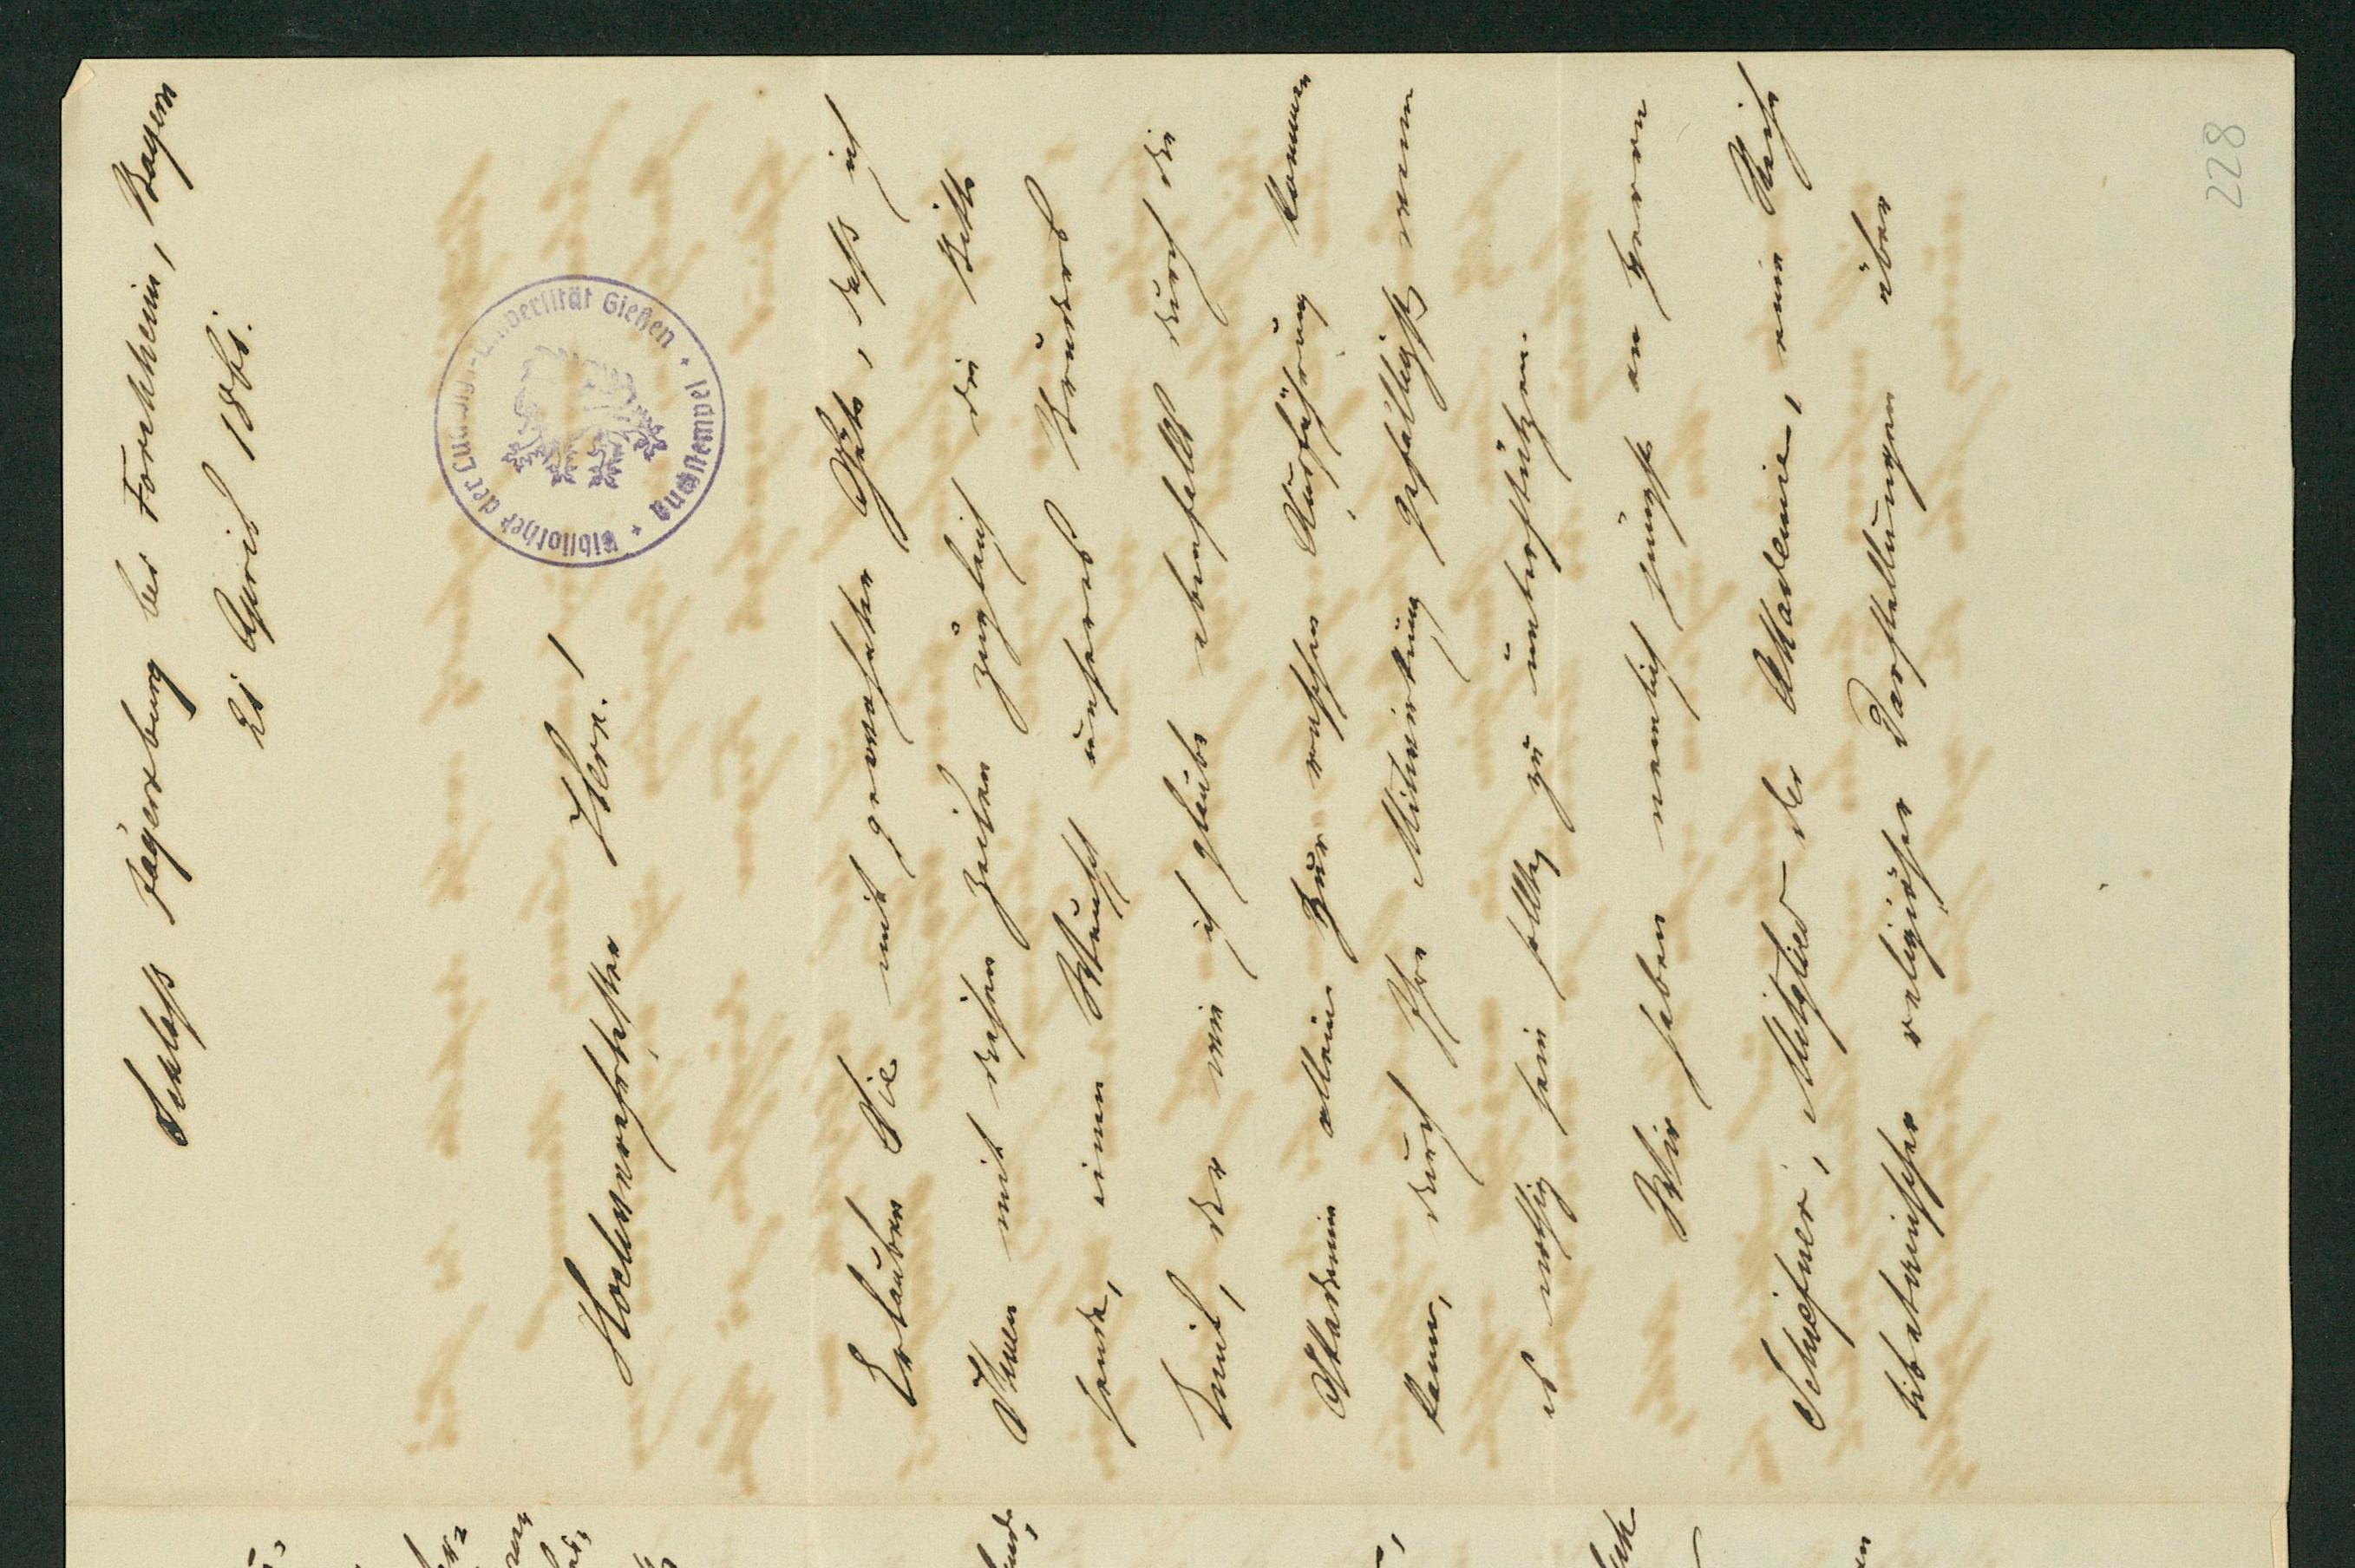 Schloss Jägersburg bei Forchheim, Bayern
21 April 1861.
Bibliothek der Ludwigs-Universität Gießen
Buchstempel
Hochverehrtester Herr!
Erlauben Sie mit gewohnter Güte, dass ich
Ihnen mit diesen Zeilen zugleich die Bitte
sende, einen Wunsch unseres Bruders
Emil, der wie ich glaube ebenfalls durch die
Akademie allein zur Ausführung kommen
kann, durch Ihre Mitwirkung gefälligst wenn
es nöthig sein sollte zu unterstützen.
Wir haben nemlich jüngst an Herrn
Schiefner, Mitglied der Akademie, eine Reihe
tibetanischer religiöser Darstellungen über
228